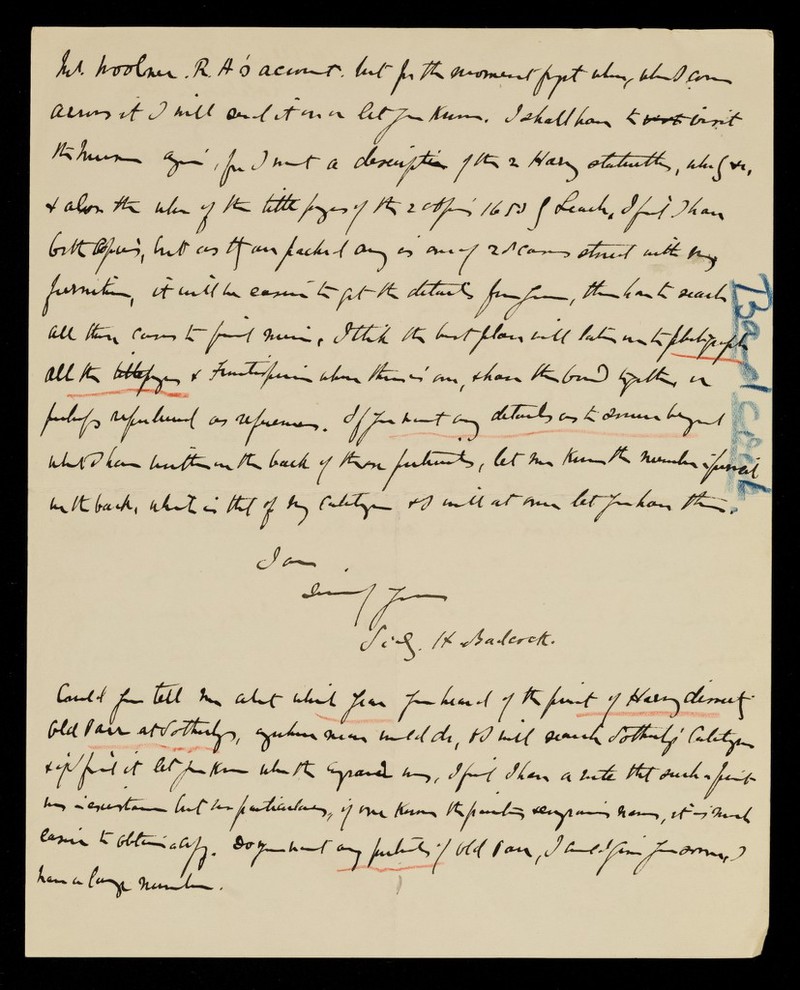 Mr. Woolner. R.A's account. but for the moment forget where, when I come
across it I will send it on or let you know. I shall have to visit
the Museum again, for I want a description of the 2 Harvey statuettes, &c,
& also the of the title pages of the 2 copies 1653 of Leach, I find I have
both copies, but as they are packed away in one of 28 cases stored with my
furniture, it will be easier to get the details from you, than have to search
all these cases to find mine, I think the best plan will later on be to photograph
all the titlepages & Frontispieces where there is one, & have them bound together or
perhaps reproduced as references. If you want any details as to beyond
what I have written on the back of those portraits, let me know the number in pencil
on the back, which is that of my catalogue & I will at once let you have them.
I am
Sincerely Yours
H Badcock.
Could you tell me about which year you heard of the print of Harvey dissecting
Old Parr at Sotheby's, anywhere near would do, & I will search Sotheby's Catalogues
& if I find it let you know who the engraver was, I find I have a note that such a print
was in existence but no particulars, if one knows the painters & engravers names, it is much
easier to obtain a copy. Do you want any portraits of Old Parr, I could give you some, I
have a large number.
Badcock.